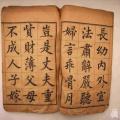 長幼內外宜
法肅辭嚴聽
婦言乖骨月
豈是丈夫重
貲財薄父母
不成人子嫁